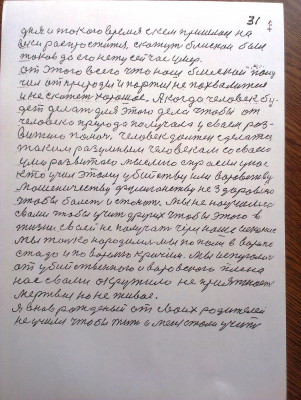 31
дня и такого время с кем пришлось на
веки распроститься, скажут близкои был
таков до его нету сейчас умер.
от этого всего что наш близкой полу
чил от природы и партии не похвалится
и не скажет хорошее. А когда человек бу-
дет делать для этого дела чтобы от
человека природа получала в своем раз-
витию помоч. человек должен сделать
таким разумным человеком со своего
ума развитого. мысленно спросим у нас
кто учил этому убийству или воровству
мошеничеству хулиганству не здоровью
чтобы болеть и стонать. Мы не научились
сами чтобы учить других чтобы этого в
жизни своей не получать чем наше
мы только народились мы попали в воров
стадо и по воровски кричим. Мы испугались
от убийственного и воровского плена
нас с вами окружило не приятность
мертвое но не живое.
Я в нов рожденый от своих родителей
не учили чтобы жить а меня стали учить